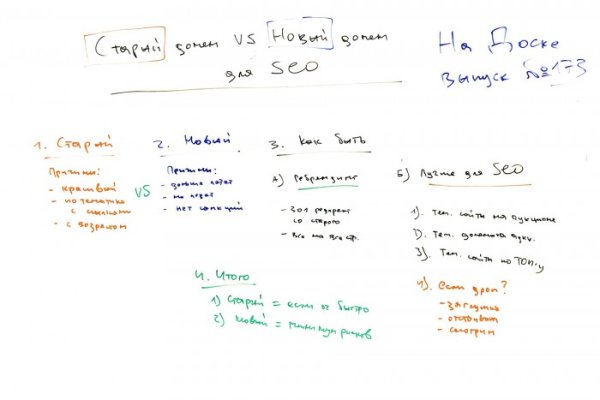 Старый домен VS Новый домен
для SEO
На Доске
выпуск №173
1. Старый
Причины:
- красивый
- по тематике
с ссылками
- с возрастом
VS
2. Новый
Причины:
- дольше
- нет санкций
3. Как быть
А) Ребрендинг
- 301 редирект
со старого
- Все на все стр.
Б) Лучше для SEO
1). Тем. сайты на аукционе
2). Тем. домены аукц.
3). Тем. сайты по ТОП-у
4). если дроп?
- заглушка
- отстоится
- смотрим
4. Итого
1) Старый = если оч быстро
2) Новый = минимум рисков